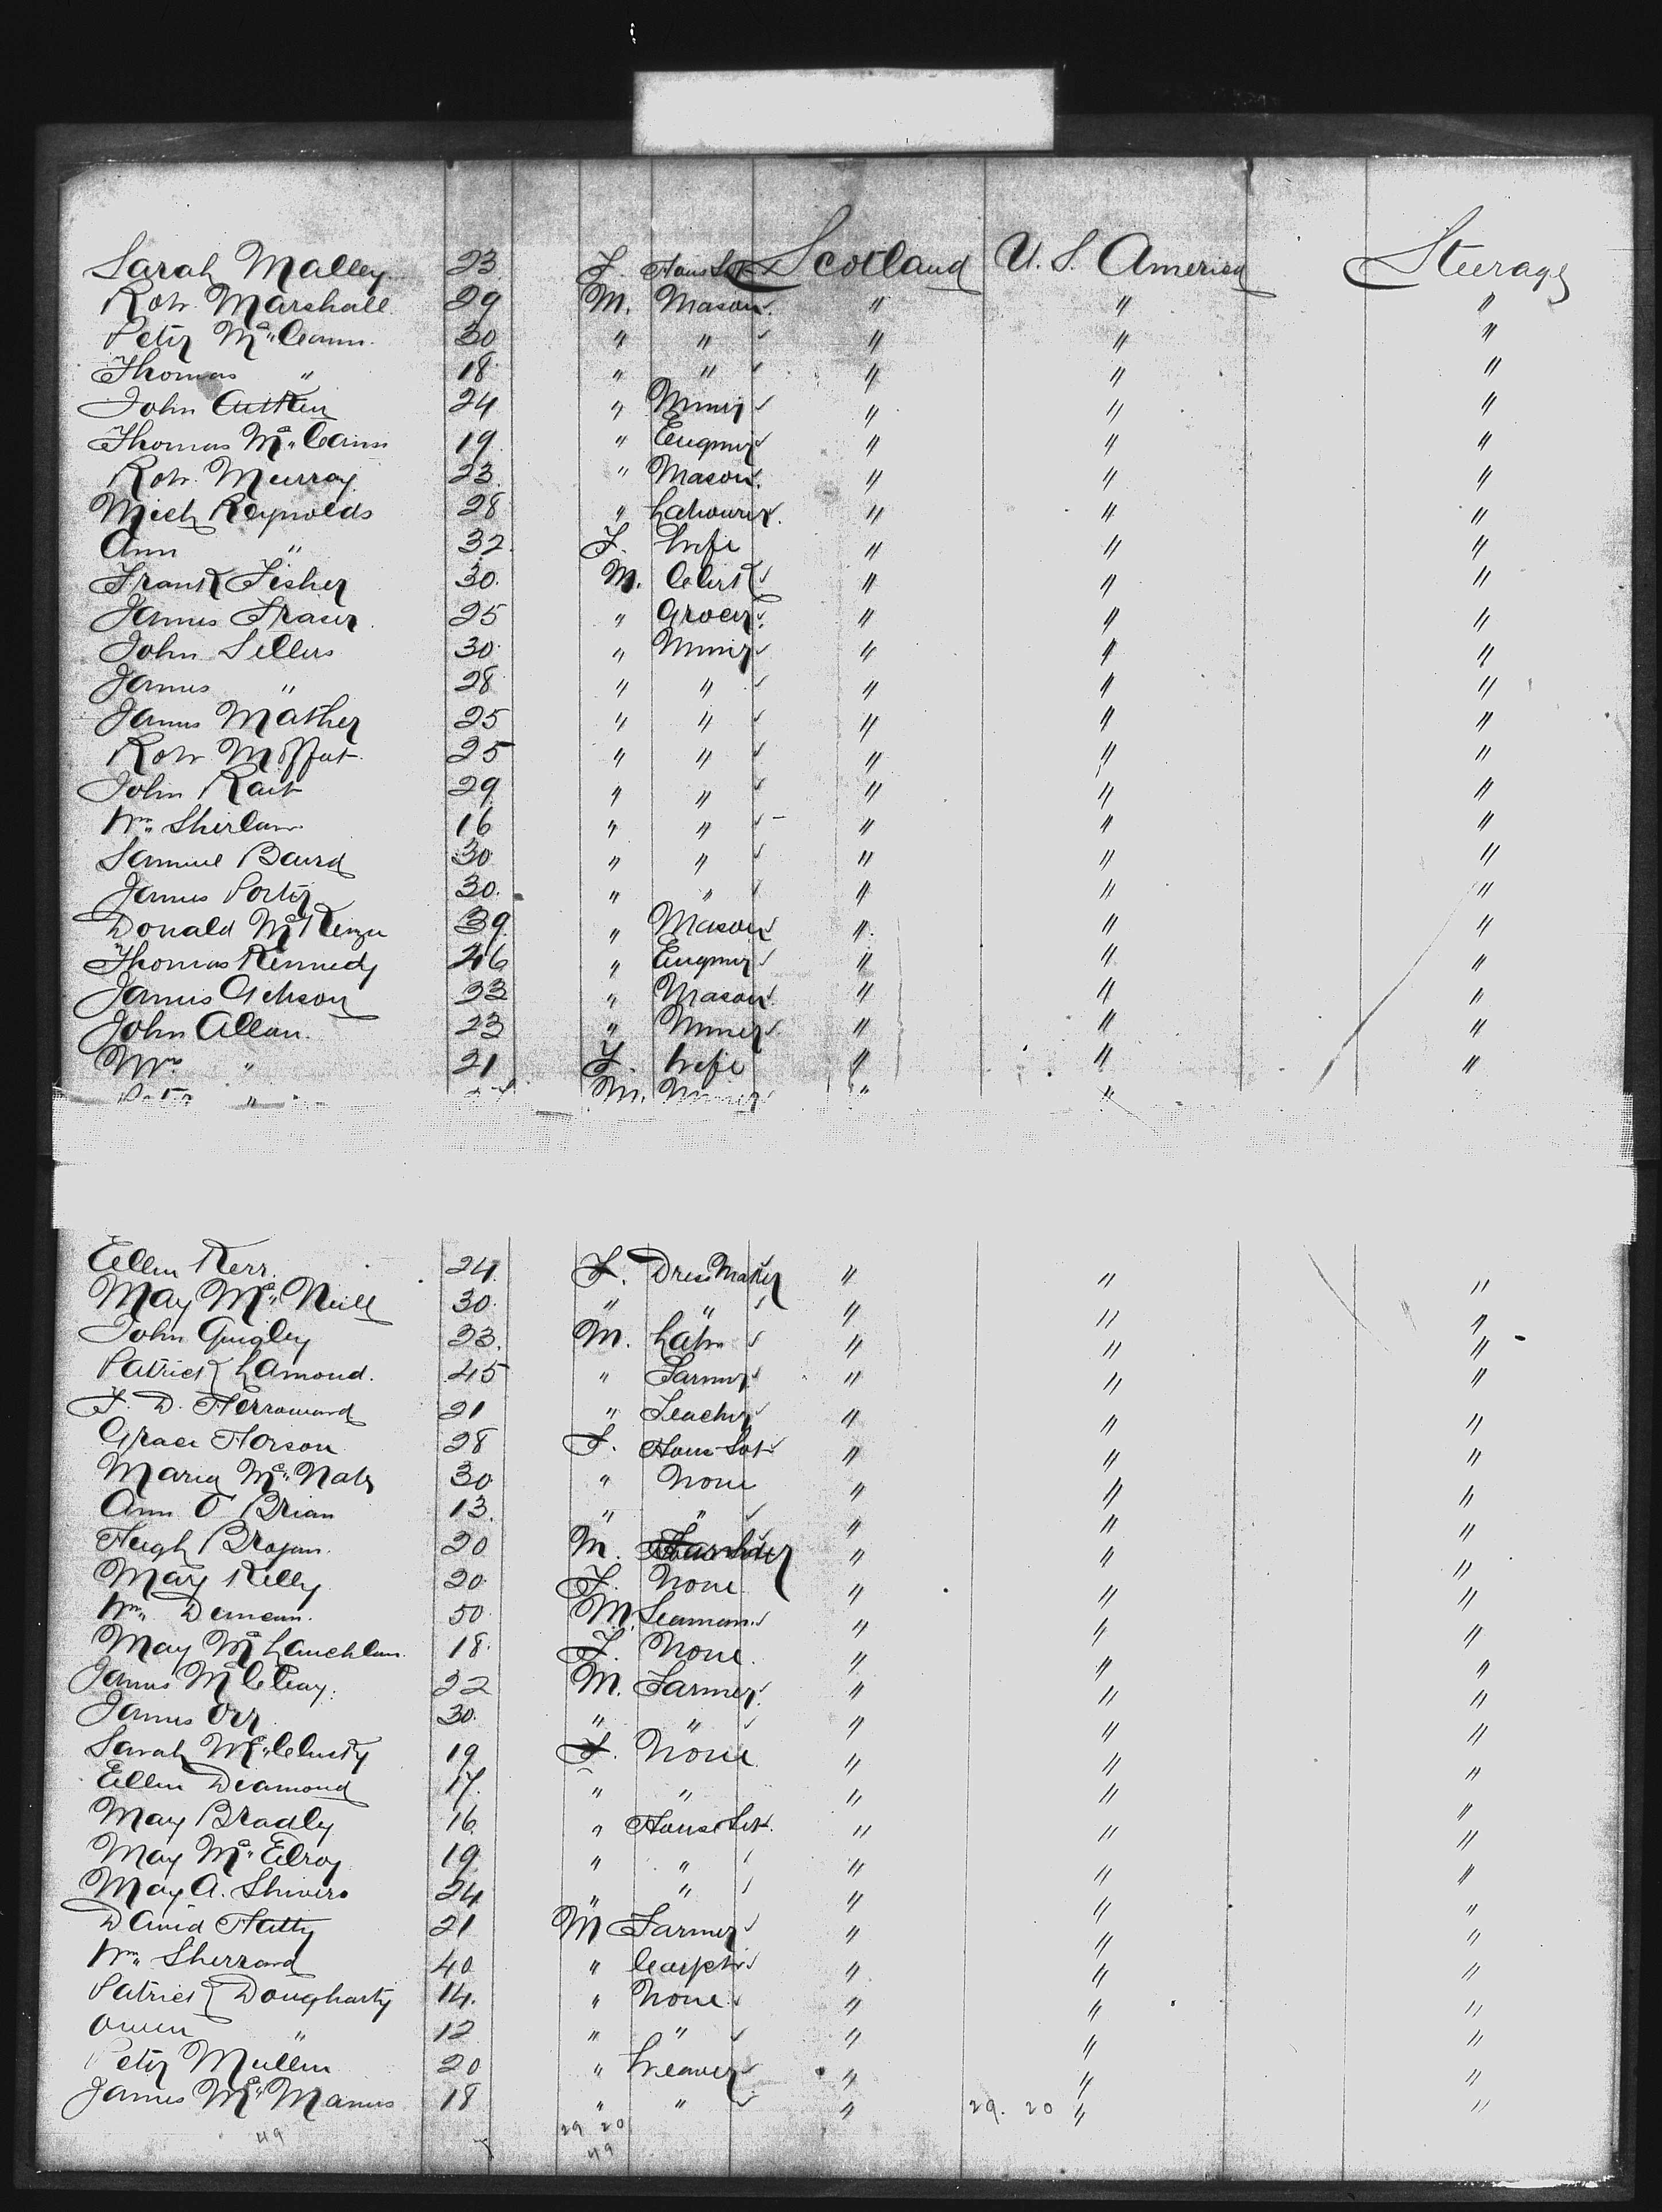 Sarah Malley 23 F. House Svt Scotland U. S. America Steerage
Robt. Marshall 29 M. Mason " " "
Peter Mc Cann 30 " " " " "
Thomas " 18 " " " " "
John Aitken 24 " Miner " " "
Thomas Mc 19 " Engineer " " "
Robt. Murray 23 " Mason " " "
Mich Reynolds 28 " Labourer " " "
Ann " 32 F. Wife " " "
Frank Fisher 30 M. Clerk " " "
James Fraser 25 " Grocer " " "
John Sellers 30 " Miner " " "
James " 28 " " " " "
James Mather 25 " " " " "
Robt. Moffat 25 " " " " "
John Rait 29 " " " " "
Wm. Shirlaw 16 " " " " "
Samuel Baird 30 " " " " "
James Porter 30 " " " " "
Donald McKenzie 39 " Mason " " "
Thomas Kennedy 46 " Engineer " " "
James Acheson 23 " Mason " " "
John Allan 23 " Miner " " "
Mrs " 21 F. Wife " " "
" M. Miner " "
Ellen Kerr 24 F. Dress Maker " " "
Mary Mc Neill 30 " " " " "
John Quigley 23 M. Labr " " "
Patrick Lamond 45 " Farmer " " "
21 " Teacher " " "
Grace 28 F. House Svt " " "
Maria Mc Nab 30 " None " " "
Ann O Brian 13 " " " " "
Hugh Brogan 20 M. " " "
Mary Kelly 20 F. None " " "
Wm. Duncan 50 M. Seaman " " "
Mary McLauchlan 18 F. None " " "
James 22 M. Farmer " " "
James Orr 30 " " " " "
Sarah McClusky 19 F. None " " "
Ellen Diamond 17 " " " " "
Mary Bradly 16 " House Svt. " " "
Mary Mc Elroy 19 " " " " "
Mary A. Shivers 24 " " " " "
David 21 M Farmer " " "
Wm. Sherrard 40 " Carptr " " "
Patrick Dougharty 14 " None " " "
Owen " 12 " " " " "
Peter Mullen 20 " Weaver " " "
James Mc Manus 18 " " " 29. 20 " "
49 29 20
49